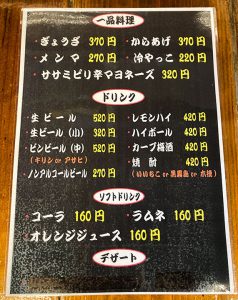 一品料理
・ぎょうざ 370円 ・からあげ 370円
・メンマ 270円 ・冷やっこ 220円
・ササミピリ辛マヨネーズ 320円
ドリンク
・生ビール 520円 ・レモンハイ 420円
・生ビール(小) 320円 ・ハイボール 420円
・ビンビール(中) 520円 ・カープ梅酒 420円
(キリン or アサヒ) ・焼酎 420円
・ノンアルコールビール 270円 (いいちこ or 黒霧島 or 水接)
ソフトドリンク
・コーラ 160円 ・ラムネ 160円
・オレンジジュース 160円
デザート